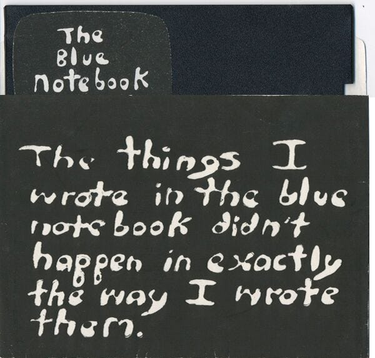 The
Blue
notebook
The things I
wrote in the blue
notebook didn't
happen in exactly
the way I wrote
them.